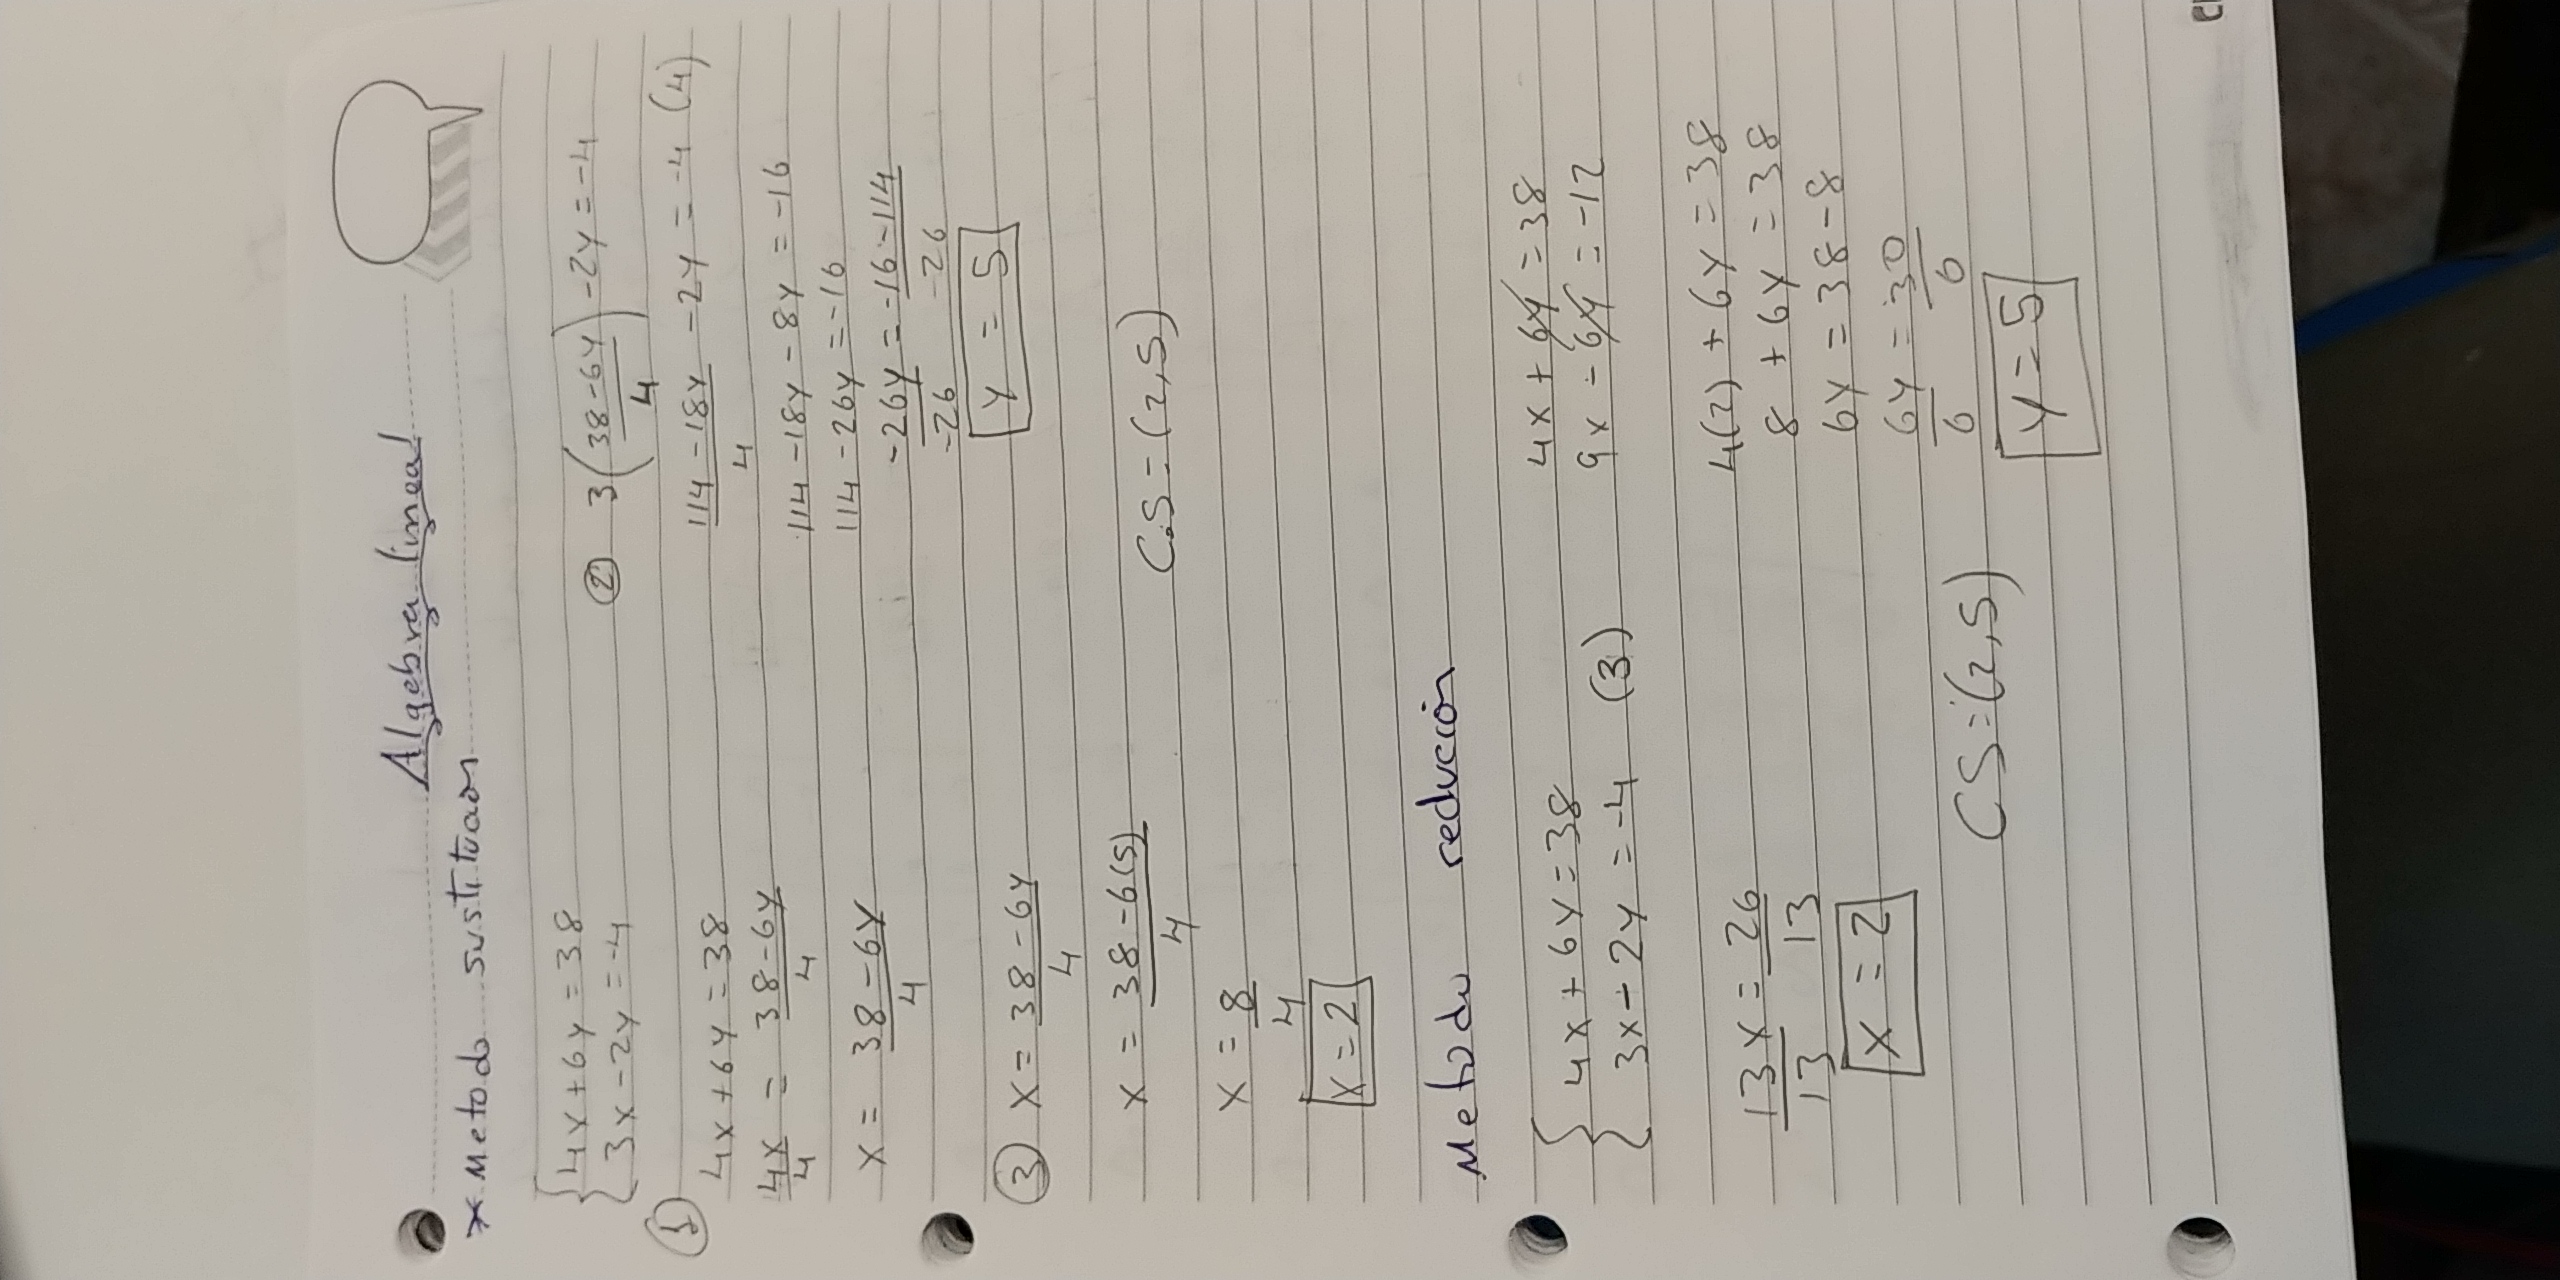 Algebra lineal
* Metodo sustitucion
4x+6y=38
3x-2y=-4
①
4x+6y=38
4x/4 = 38-6y/4
x = 38-6y/4
② 3(38-6y/4)-2y=-4
114-18y/4 -2y = -4 (4)
114-18y-8y = -16
114-26y=-16
-26y/-26 = -16-114/-26
y = 5
③ x= 38-6y/4
x = 38-6(5)/4
x = 8/4
x=2
C.S=(2,5)
Metodo reducción
4x+6y=38
3x-2y=-4 (3)
4x+6y=38
9x-6y=-12
13x/13 = 26/13
x=2
4(2)+6y=38
8+6y=38
6y=38-8
6y/6 = 30/6
y=5
CS=(2,5)